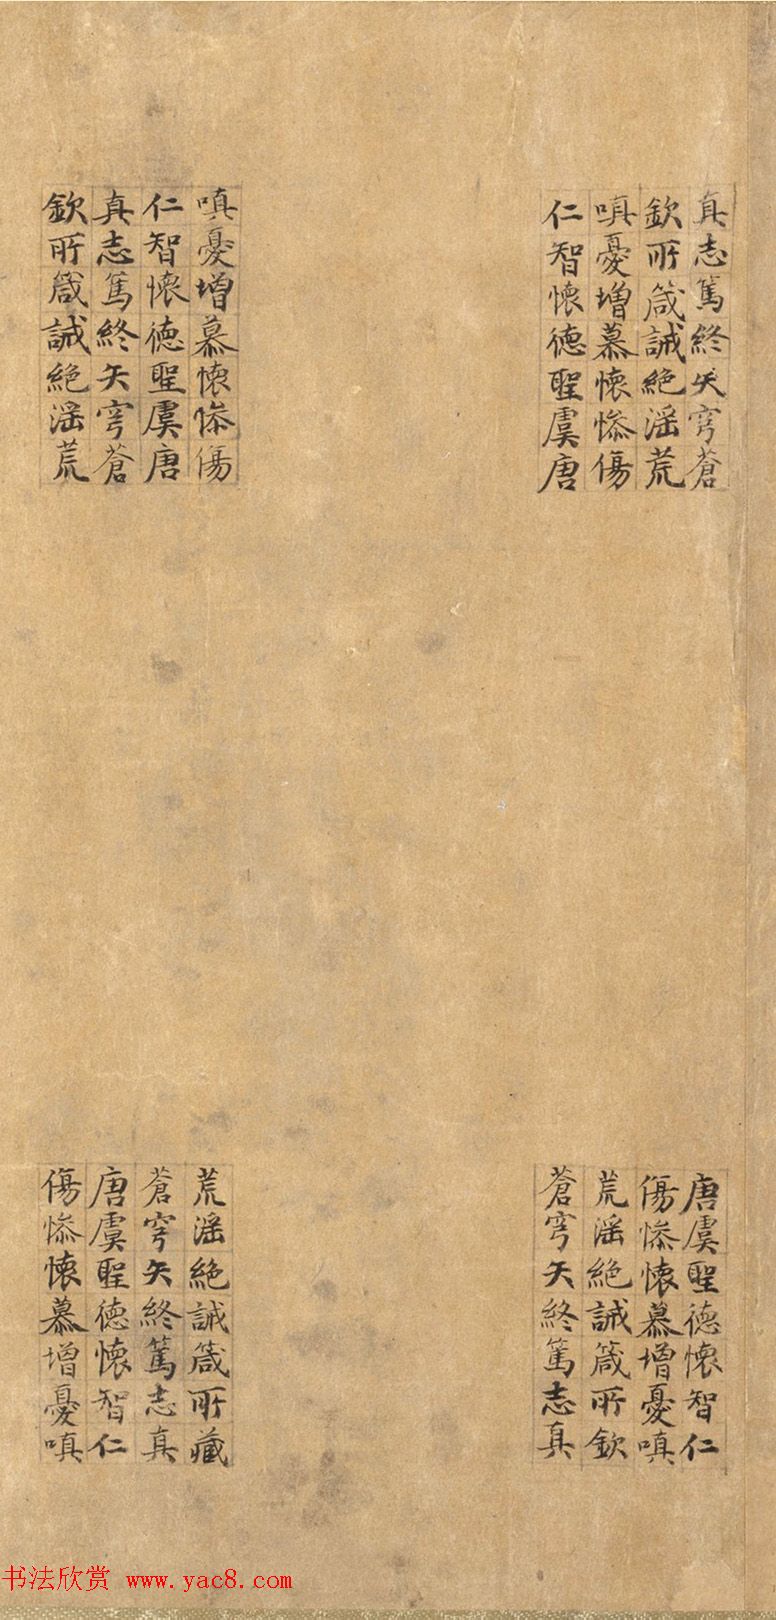 真志篤終矢穹蒼
欽所箴誡絶淫荒
嗔憂增慕懷慘傷
仁智懷德聖虞唐
嗔憂增慕懷慘傷
仁智懷德聖虞唐
真志篤終矢穹蒼
欽所箴誡絶淫荒
唐虞聖德懷智仁
傷慘懷慕增憂嗔
荒淫絶誡箴所欽
蒼穹矢終篤志真
荒淫絶誡箴所藏
蒼穹矢終篤志真
唐虞聖德懷智仁
傷慘懷慕增憂嗔
书法欣赏 www.yac8.com